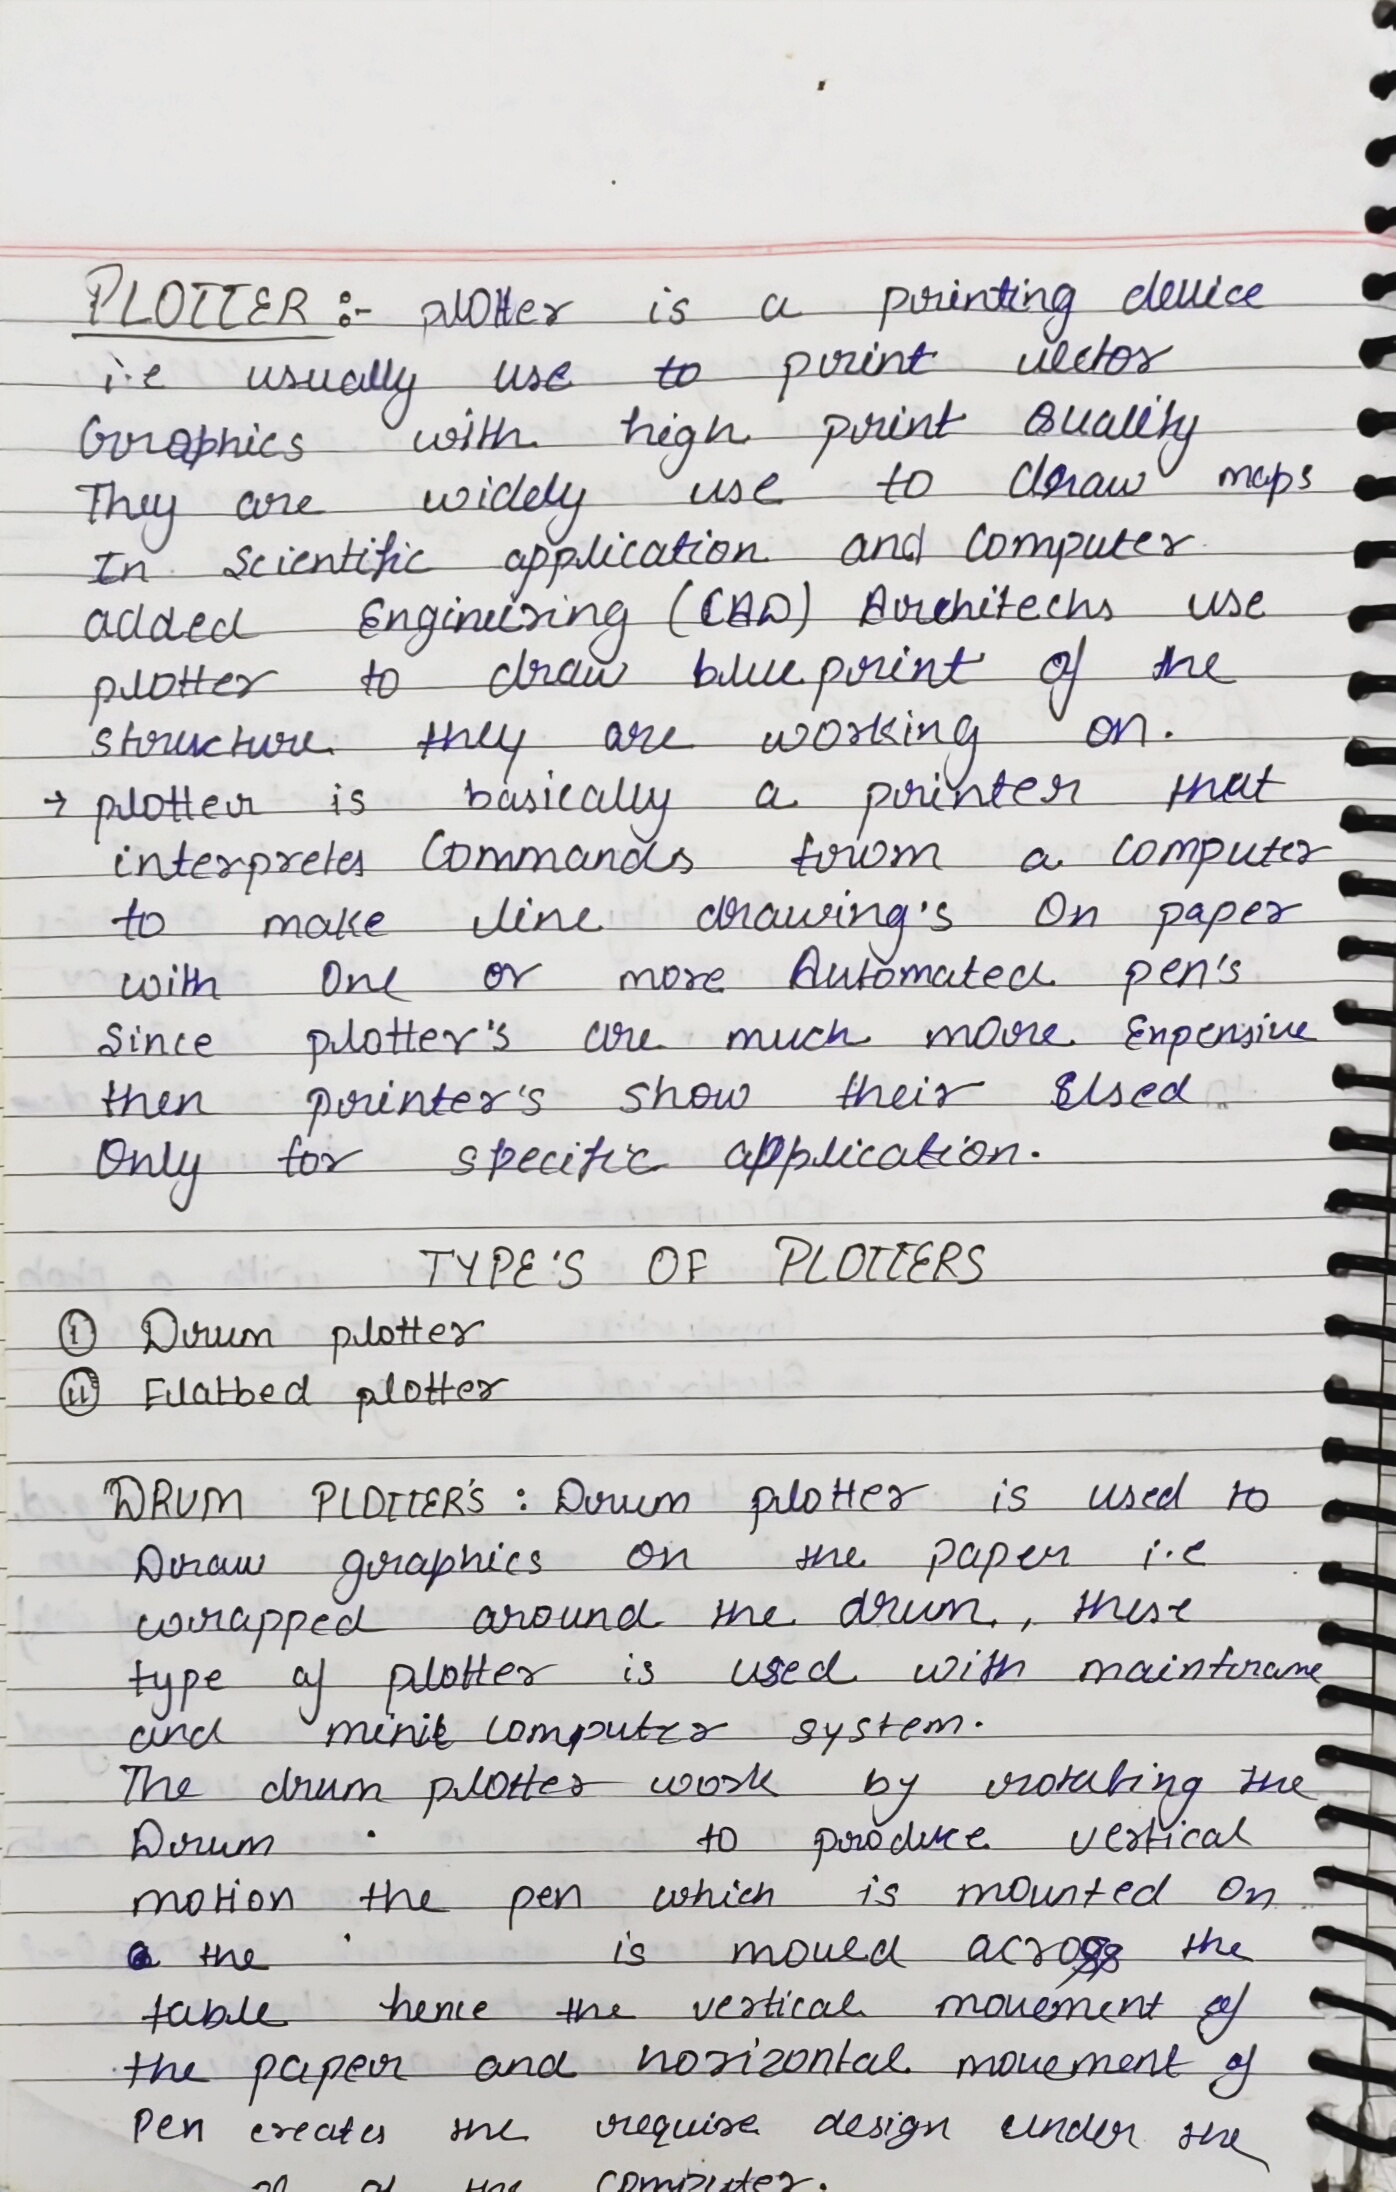 PLOTTER :- plotter is a printing device
i.e usually use to print vector
Graphics with high print Quality
They are widely use to draw maps
In Scientific application and Computer
added Engineering (CAD) Architechs use
plotter to draw blueprint of the
structure they are working on.
→ plotter is basically a printer that
interpretes Commands from a computer
to make line drawing's On paper
with One or more Automated pen's
Since plotter's are much more Expensive
then printer's show their Used
Only for specific application.
TYPE'S OF PLOTTERS
(i) Drum plotter
(ii) Flatbed plotter
DRUM PLOTTER'S : Drum plotter is used to
Draw graphics on the paper i.e
wrapped around the drum, these
type of plotter is used with mainframe
and mini computer system.
The drum plotter work by rotating the
Drum to produce vertical
motion the pen which is mounted on
the is moved across the
table hence the vertical movement of
the paper and horizontal movement of
Pen creates the require design under the
of the computer.